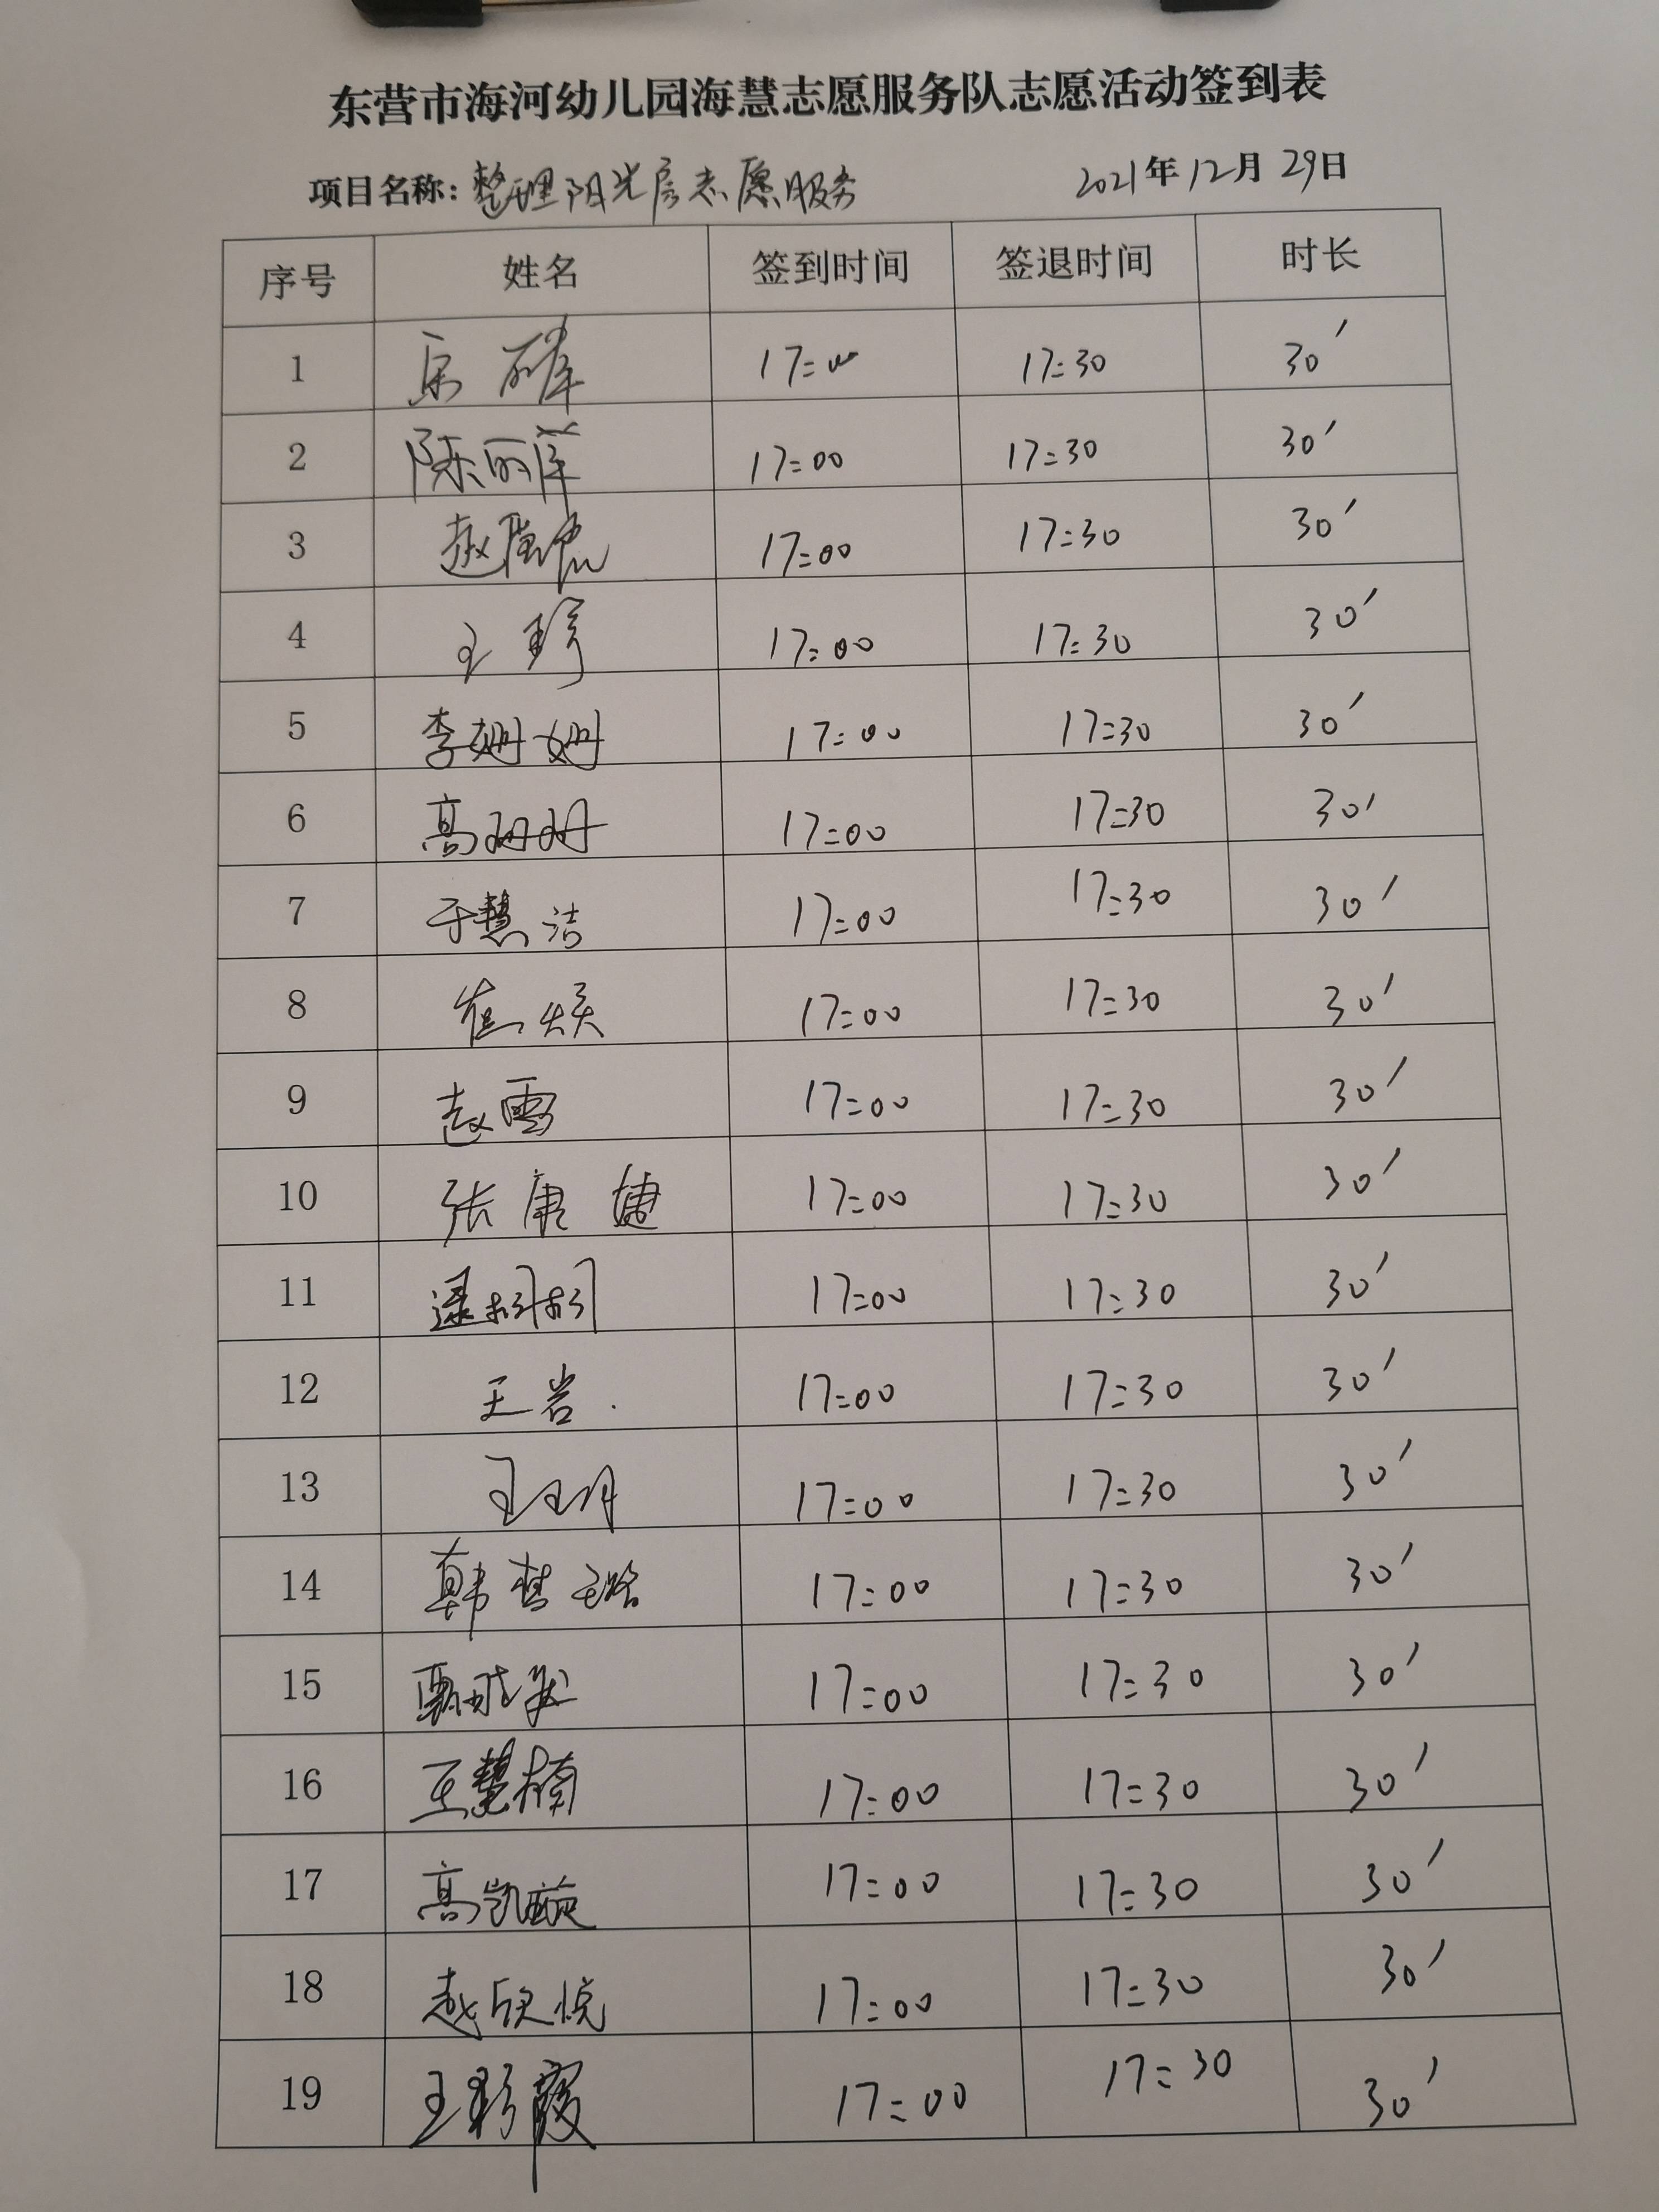 东营市海河幼儿园海慧志愿服务队志愿活动签到表
项目名称：整理阳光房志愿服务 2021年12月29日
序号 姓名 签到时间 签退时间 时长
1 17:00 17:30 30′
2 陈丽萍 17:00 17:30 30′
3 赵 17:00 17:30 30′
4 王 17:00 17:30 30′
5 李姗姗 17:00 17:30 30′
6 高珊珊 17:00 17:30 30′
7 于慧洁 17:00 17:30 30′
8 崔 17:00 17:30 30′
9 赵雪 17:00 17:30 30′
10 张康婕 17:00 17:30 30′
11 逯 17:00 17:30 30′
12 王岩 17:00 17:30 30′
13 王玥 17:00 17:30 30′
14 韩梦璐 17:00 17:30 30′
15 甄 17:00 17:30 30′
16 王慧楠 17:00 17:30 30′
17 高凯璇 17:00 17:30 30′
18 赵欣悦 17:00 17:30 30′
19 王彩霞 17:00 17:30 30′